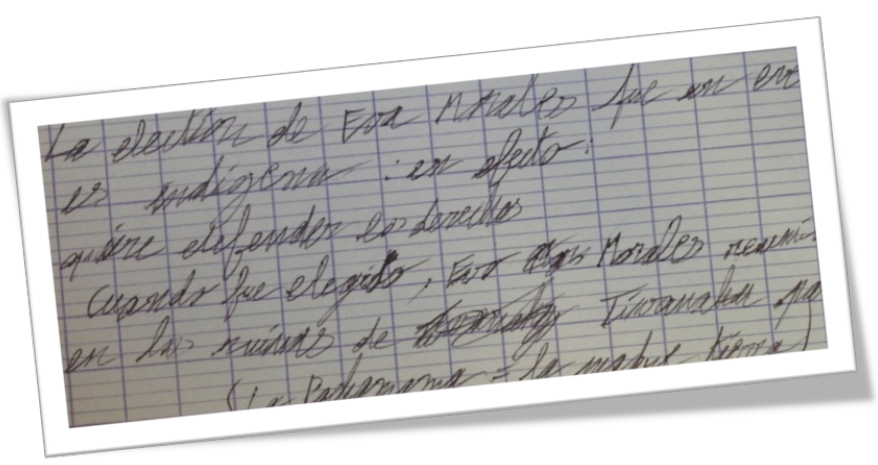 La election de Evo Morales fue un eve
es indigena : en efecto :
quiere defender los derechos
Cuando fue elegido, Evo Morales reuni
en las ruinas de Tiwanaku
(La Pachamama = la madre tierra)